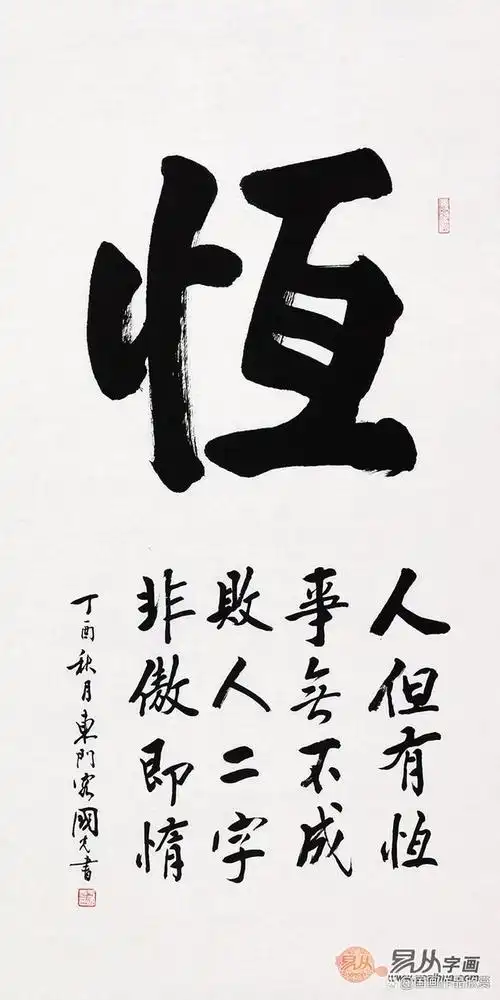 恆
人但有恆
事無不成
敗人二字
非傲即惰
丁酉秋月東門客國光書
易从字画